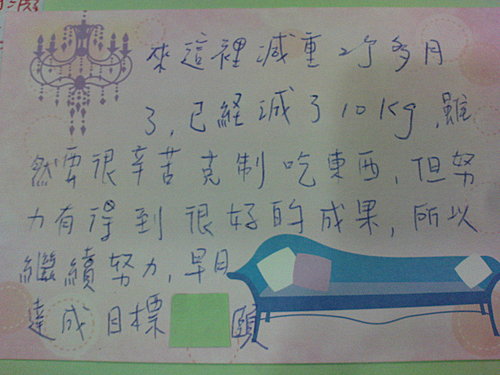 來這裡減重2个多月
了,已経減了10Kg,雖
然要很辛苦克制吃東西,但努
力有得到很好的成果,所以
繼續努力,早日
達成目標 頤